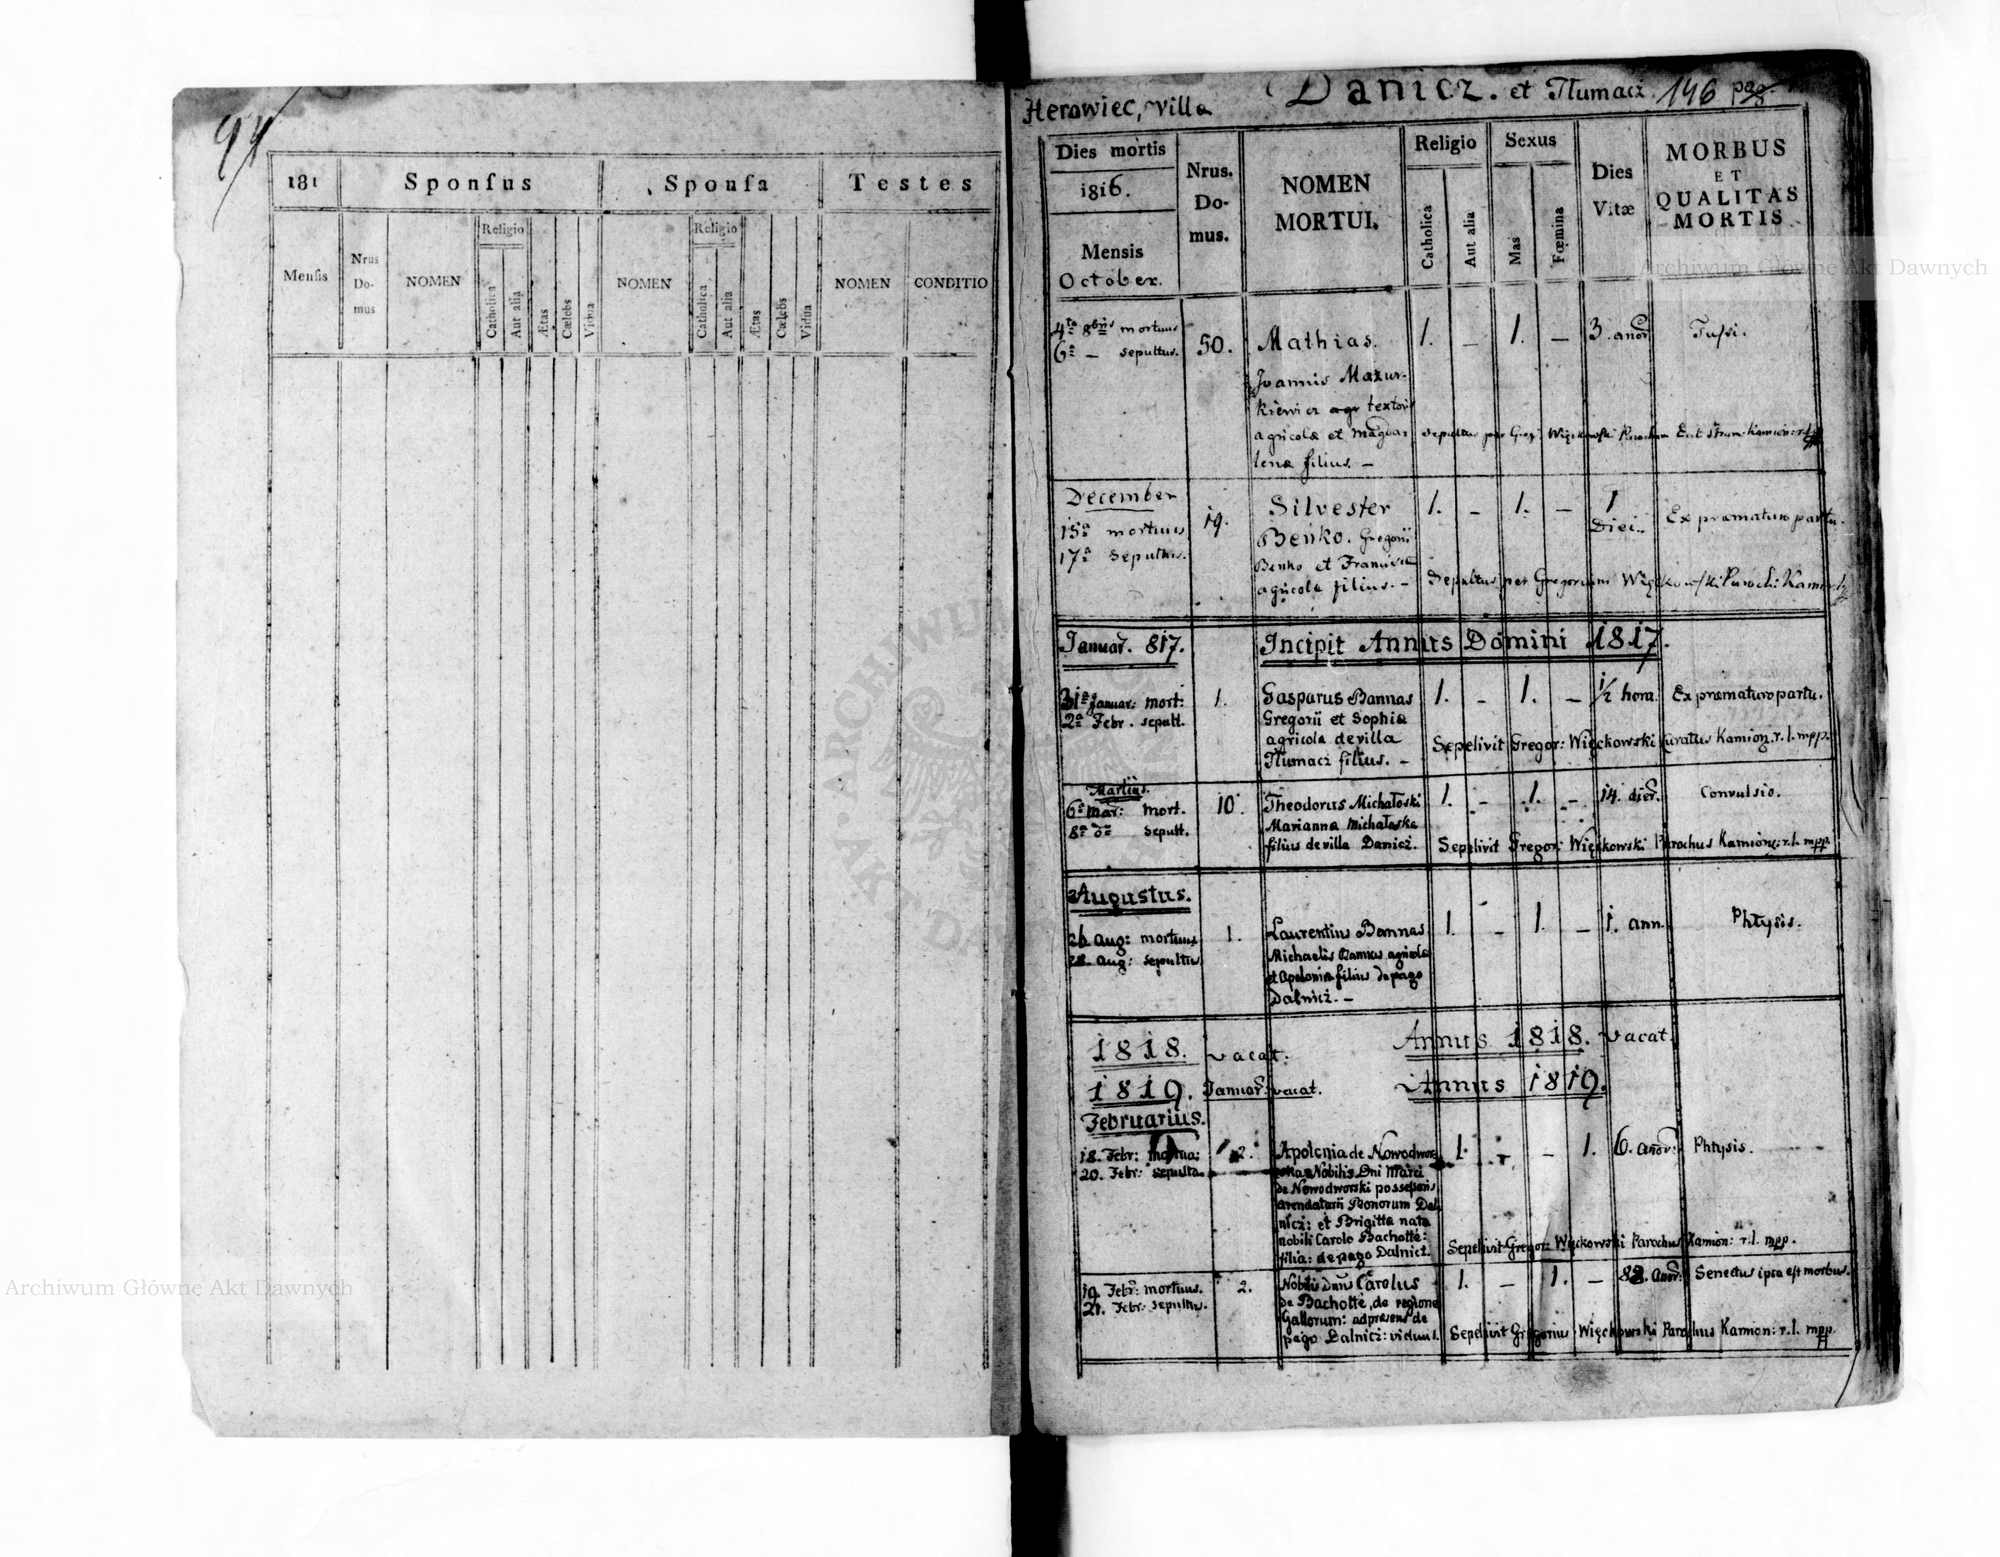 94
181
Sponsus
Sponsa
Testes
Mensis
Nrus
Do-
mus
NOMEN
Religio
Catholica
Aut alia
Ætas
Cælebs
Vidua
NOMEN
Religio
Catholica
Aut alia
Ætas
Cælebs
Vidua
NOMEN
CONDITIO
Herowiec, villa
Danicz. et Tłumacz. 146 pag.
Dies mortis
1816.
Mensis
October.
Nrus.
Do-
mus.
NOMEN
MORTUI.
Religio
Catholica
Aut alia
Sexus
Mas
Fœmina
Dies
Vitæ
MORBUS
ET
QUALITAS
MORTIS
4ta 8bris mortuus
6a – sepultus.
50.
Mathias.
Joannis Mazur-
kiewicz agr textoris
agricolæ et Magda-
lenæ filius. –
1. – 1. –
3. anor
Tussi.
Sepultus per Greg: Więckowski Parochum
December
15a mortuus
17a Sepultus.
19.
Silvester
Benko. Gregorii
Benko et Francisca
agricolæ filius. –
1. – 1. –
1
Diei..
Ex præmaturo partu.
Sepultus per Gregorium Więckowski Paroch: Kamion:
Januar. 817.
Incipit Annus Domini 1817.
31a Januar: mort:
2a Febr. sepult.
1.
Gasparus Bannas
Gregorii et Sophiæ
agricola de villa
Tłumacz filius. –
1. – 1. –
1/2 hora.
Ex præmaturo partu.
Sepelivit Gregor: Więckowski Curatus Kamion. r. l. mpp.
Martius.
6a Mar: mort.
8a do sepult.
10.
Theodorus Michałoski
Marianna Michałoska
filius de villa Danicz.
1. – 1. –
14. dier.
Convulsio.
Sepelivit Gregor: Więckowski Parochus Kamion: r. l. mpp.
Augustus.
26. aug: mortuus
28. aug: sepultus
1.
Laurentius Bannas
Michaelis Bannas agricola
et Apolonia filius de pago
Dalnicz. –
1. – 1. –
1. ann.
Phtysis.
1818. vacat.
Annus 1818. vacat.
1819. Januar: vacat.
Annus 1819.
Februarius.
18. Febr: mortua:
20. Febr: sepulta.
2.
Apolonia de Nowodwor-
ska Nobilis Dni Marci
de Nowodworski possessoris
arendatarii Bonorum Dal-
nicz: et Brigitta nata
nobili Carolo Bachotte:
filia: de pago Dalnicz.
1. – – 1.
6. anor:
Phtysis.
Sepelivit Gregor: Więckowski Parochus Kamion: r. l. mpp.
19. Febr: mortuus.
21. Febr: sepultus.
2.
Nobilis Dnus Carolus
de Bachotte, de regione
Gallorum: ad præsens de
pago Dalnicz: viduus.
1. – 1. –
82. anor:
Senectus ipsa est morbus.
Sepelivit Gregorius Więckowski Parochus Kamion: r. l. mpp.
Archiwum Główne Akt Dawnych
Archiwum Główne Akt Dawnych